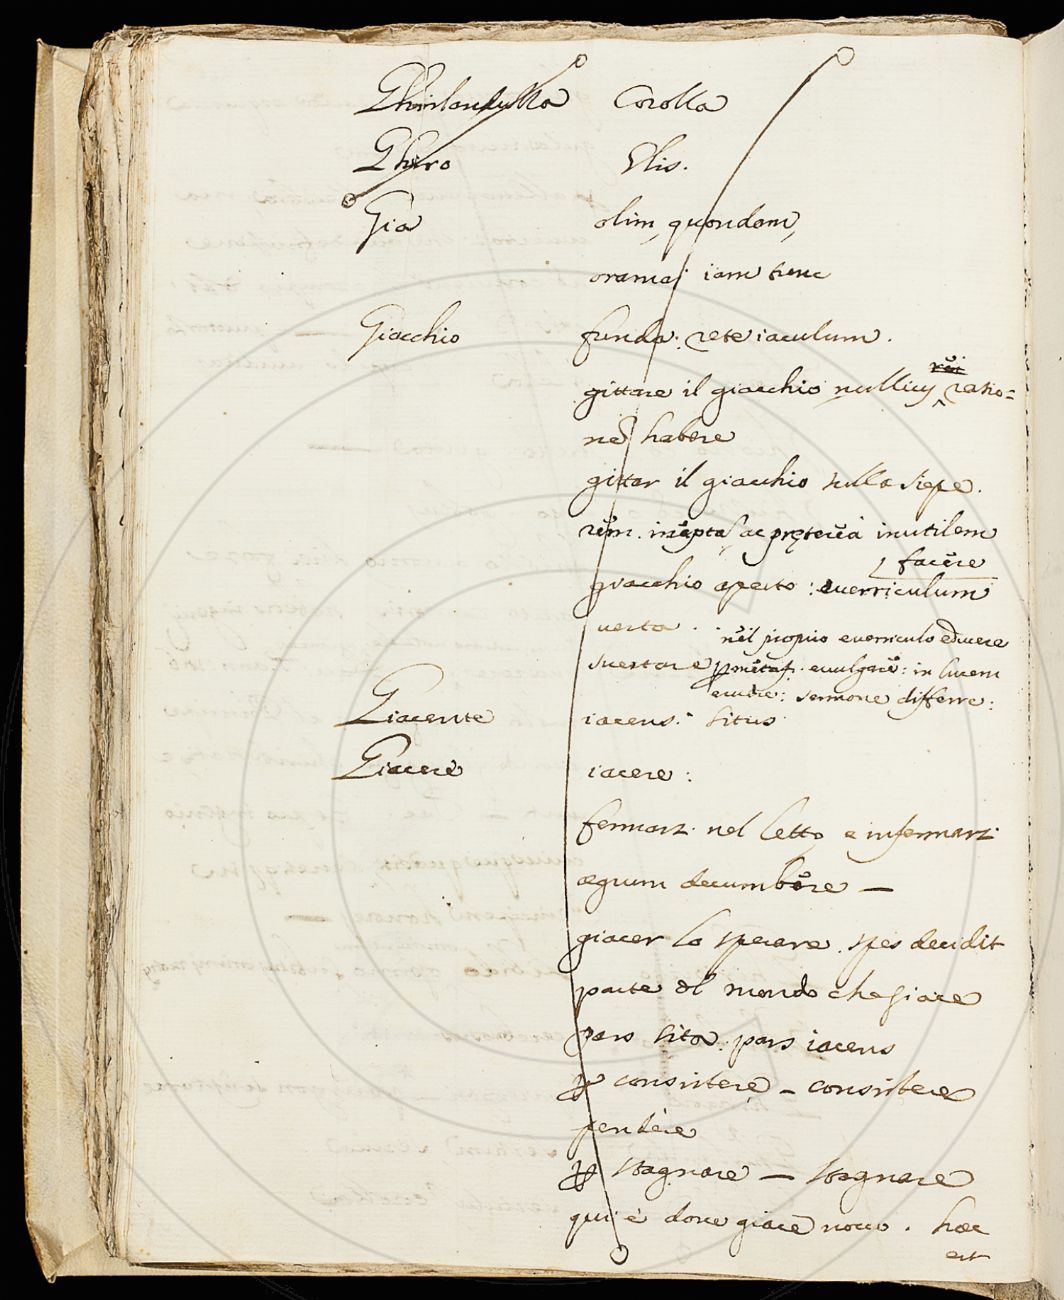 Ghirlandella Corolla
Ghiro Glis.
Gia olim, quondam,
oramai iam tunc
Giacchio funda. rete iaculum.
gittare il giacchio nullius ratio=
nē habere
gittar il giacchio sulla siepe.
rem. ineptā, ac prętereà inutilem
facere
giacchio aperto: everriculum
nel propio everriculo educere
svertare p metaf. evulgare: in lucem
sermone differre:
Giacente iacens: situs
Giacere iacere:
fermarsi nel letto, e infermarsi
ægrum decumbere —
giacer la sperare. spes decidit
parte del mondo che giace
pars sita: pars iacens
p consistere – consistere
pendere
p stagnare — stagnare
qui è dove giace nocco. hoc
est